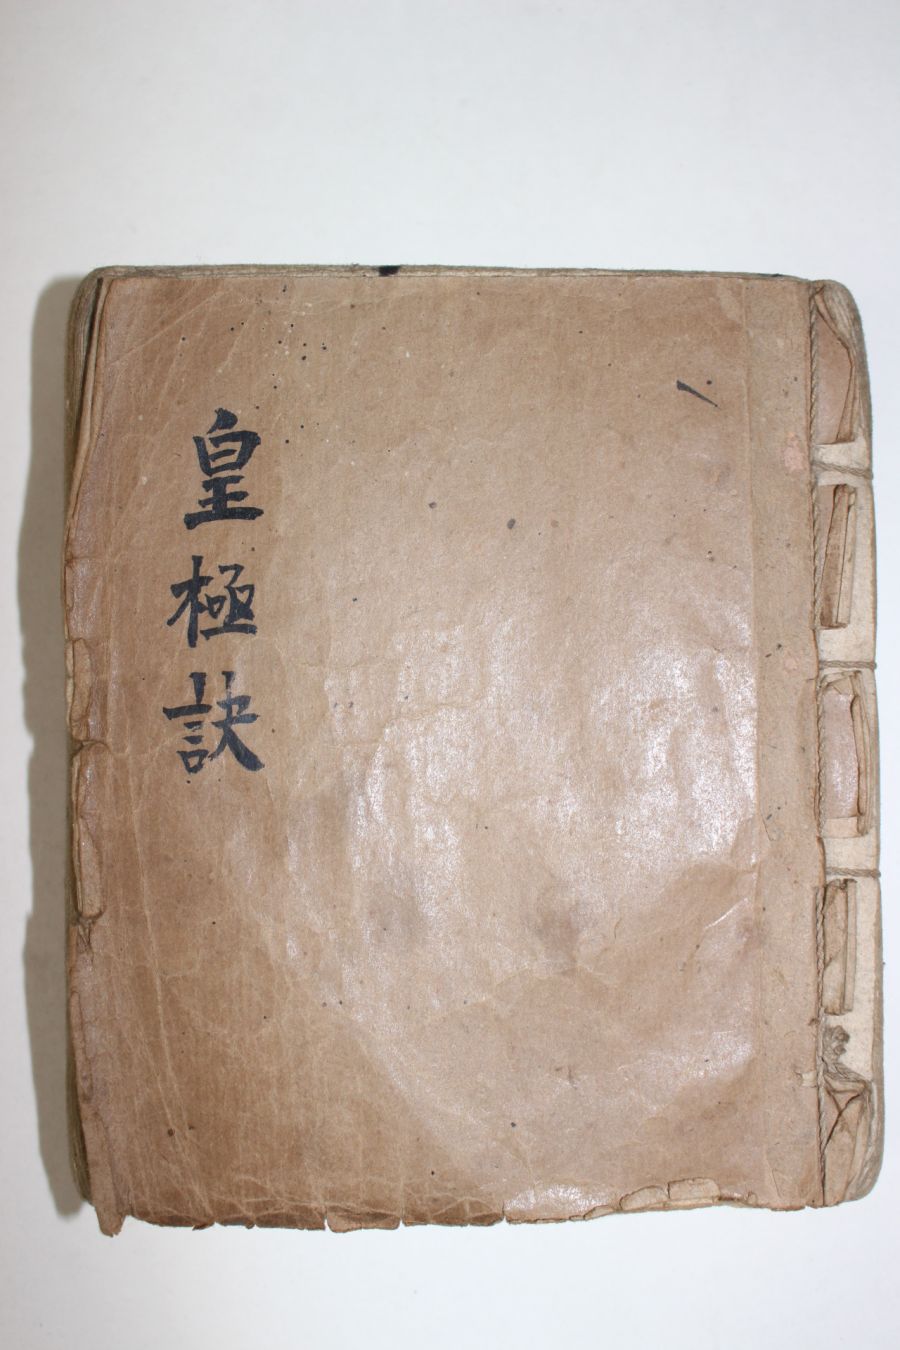 皇極訣